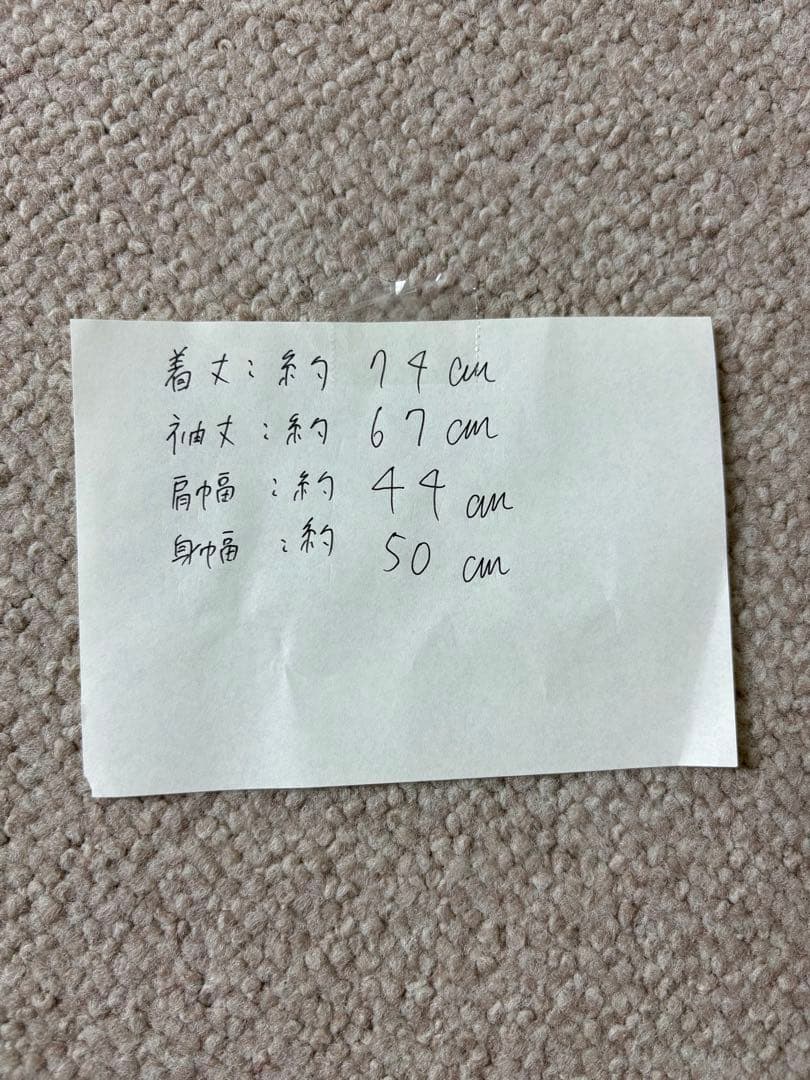 着丈:約 74cm
袖丈:約 67cm
肩幅:約 44cm
身幅:約 50cm